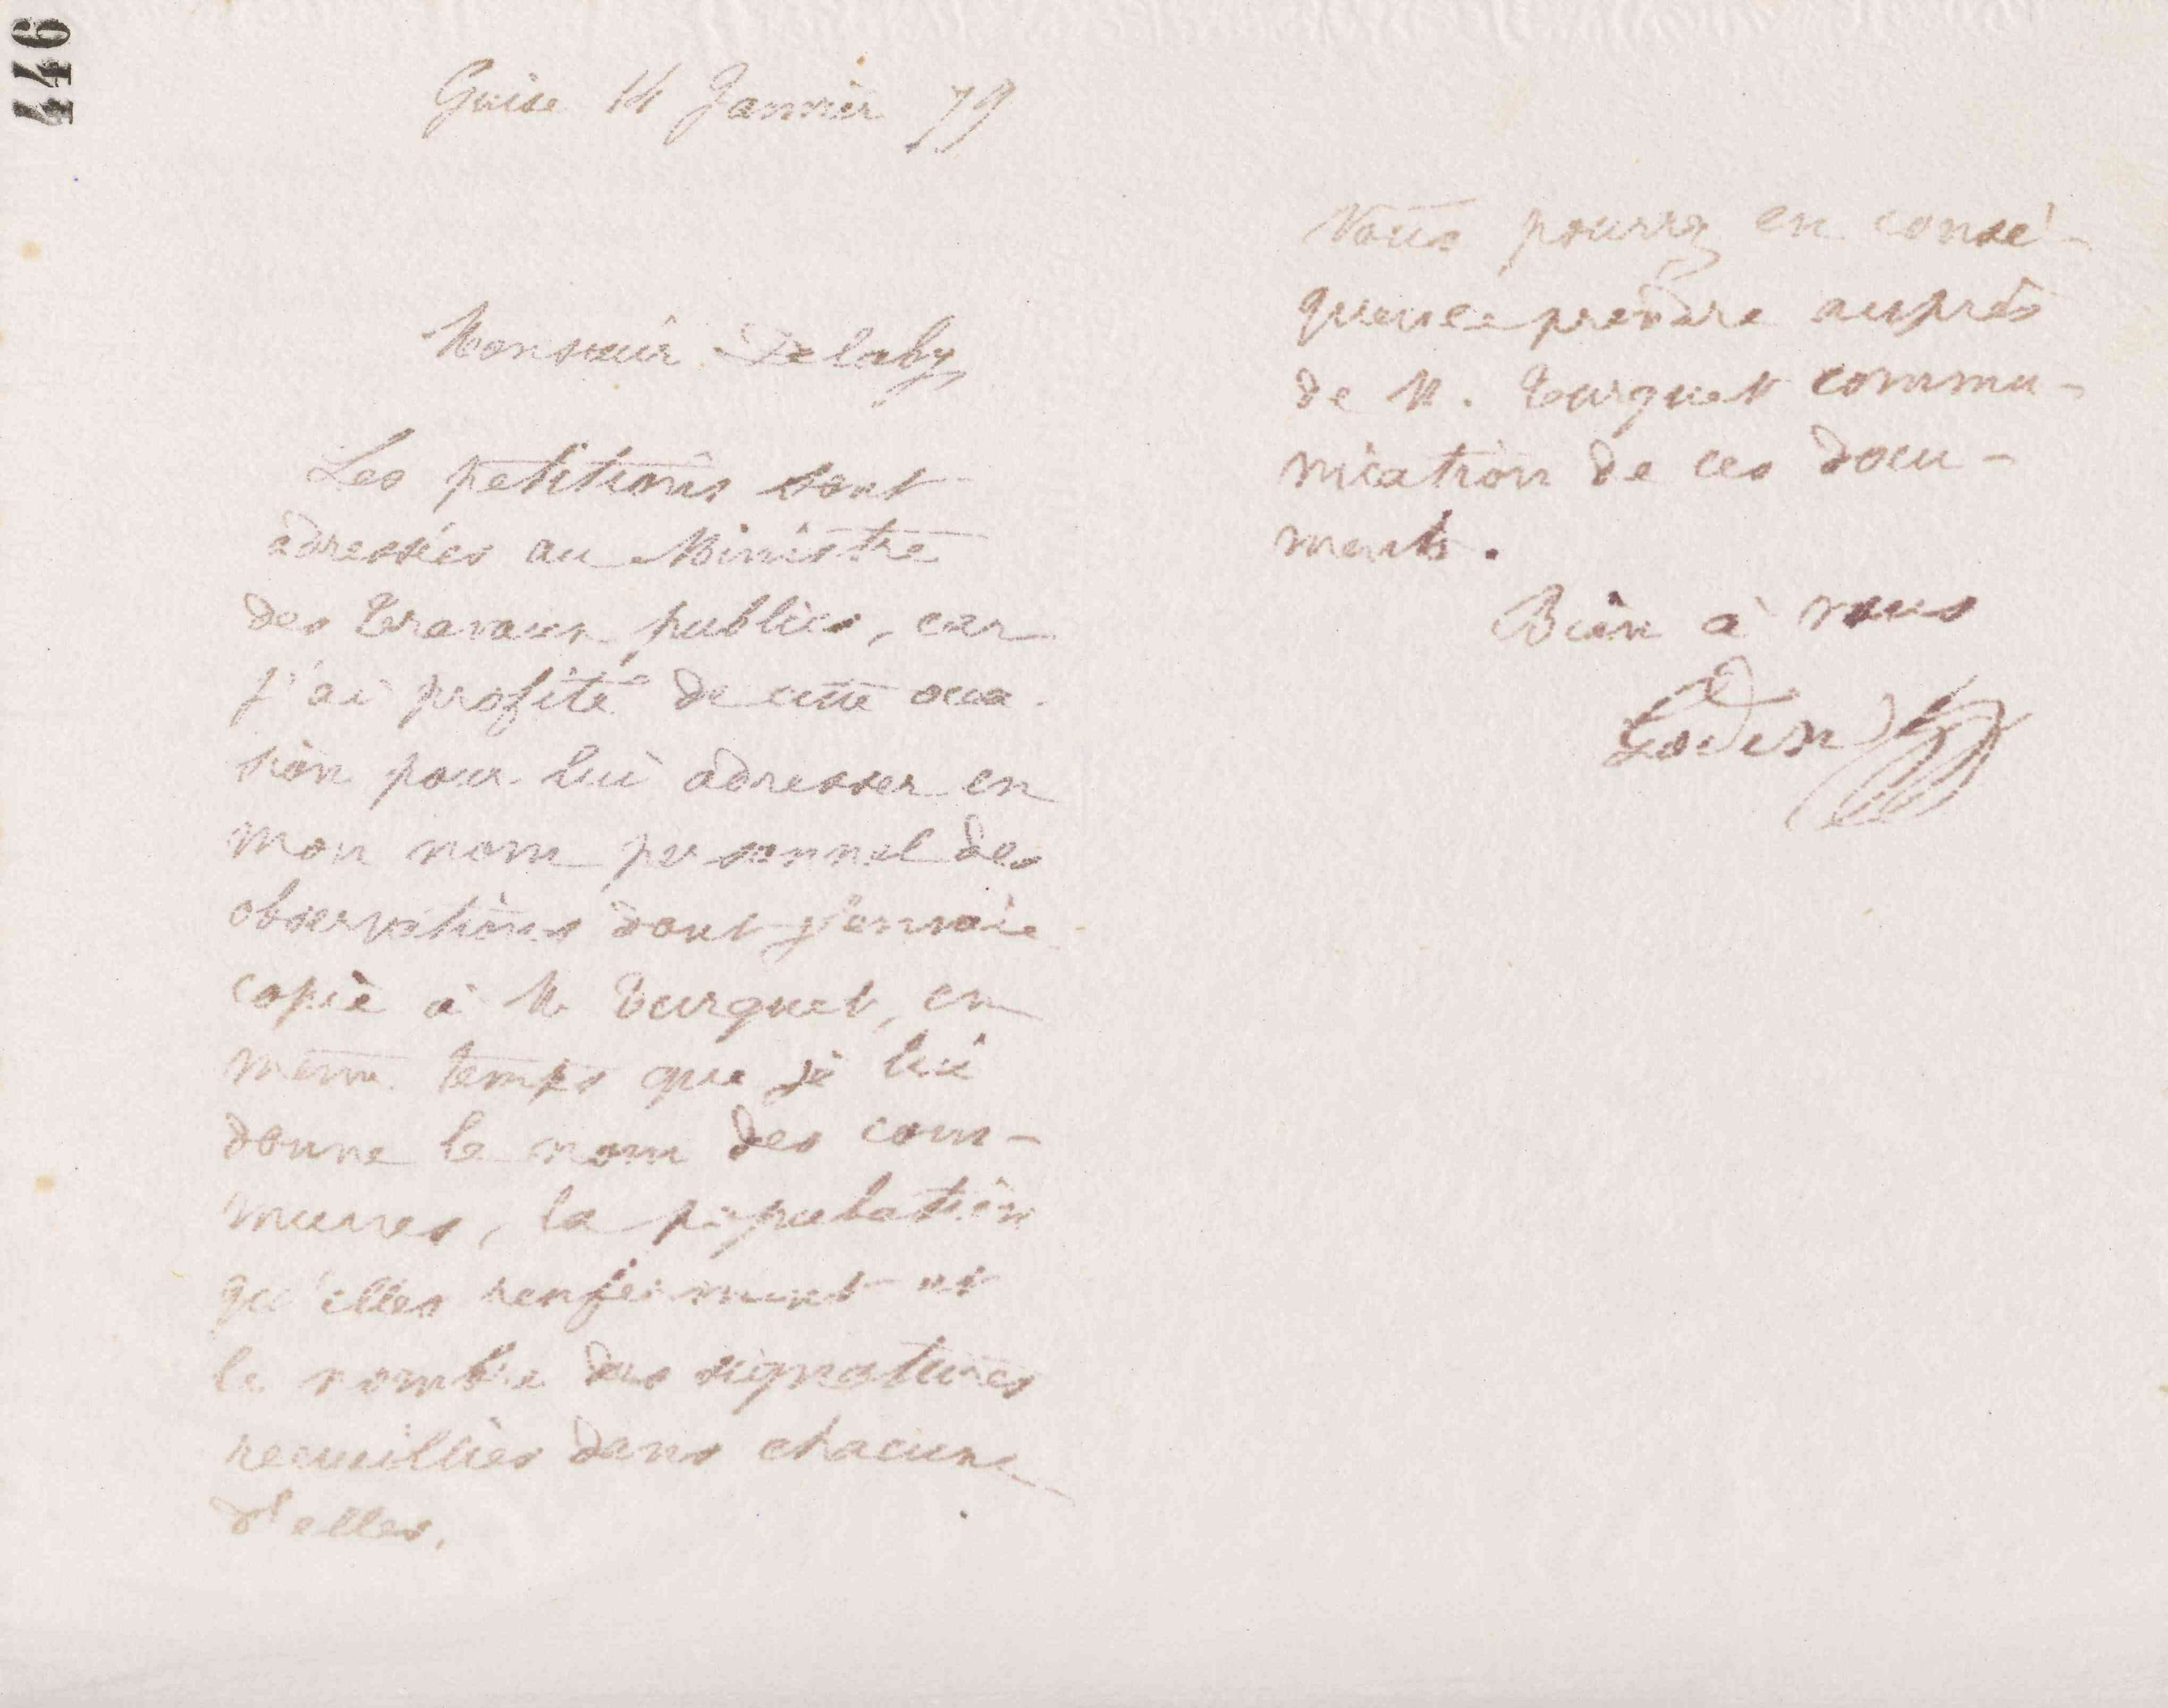 446
Guise 14 Janvier 79
Monsieur Delaby
Les petitions sont
adressées au Ministre
des Travaux publics, car
j'ai profité de cette occa-
sion pour lui adresser en
mon nom personnel des
observations dont j'envoie
copie à M Turquet, en
même temps que je lui
donne le nom des com-
munes, la population
qu'elles renferment et
le nombre des signatures
recueillies dans chacune
d'elles.
Vous pourrez en consé-
quence prendre auprès
de M. Turquet commu-
nication de ces docu-
ments.
Bien à vous
Godin